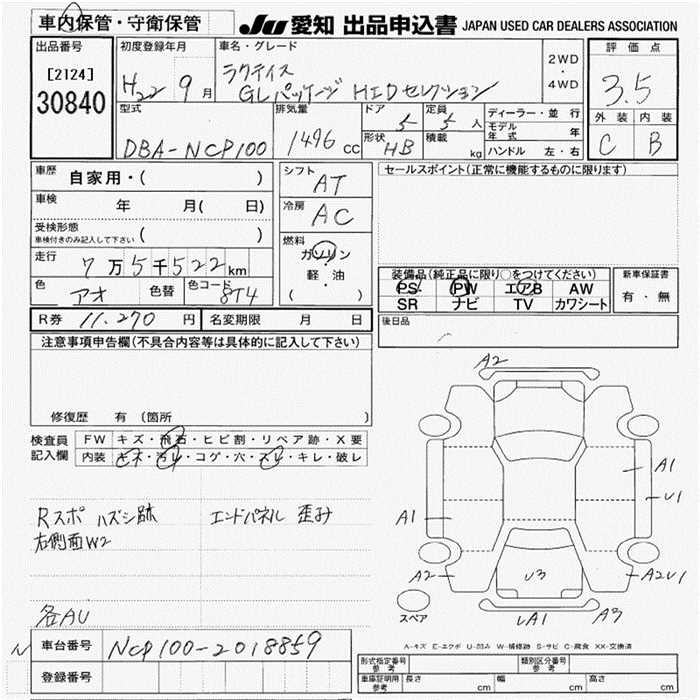 車内保管・守衛保管
JU 愛知 出品申込書 JAPAN USED CAR DEALERS ASSOCIATION
出品番号
[2124]
30840
初度登録年月
H22 9月
車名・グレード
ラクティス
GLパッケージ HIDセレクション
2WD
・
4WD
評価点
3.5
外装 内装
C B
型式
DBA-NCP100
排気量
1496 cc
ドア
5
形状
HB
定員
5 人
積載
kg
ディーラー・並行
モデル年式 年
ハンドル 左・右
車歴 自家用・( )
車検 年 月( 日)
受検形態
車検付きのみ記入して下さい ( )
走行 7万5千522km
色 アオ 色替 色コード 8T4
シフト AT
冷房 AC
燃料
ガソリン
軽・油
( )
セールスポイント(正常に機能するものに限ります)
装備品(純正品に限り○をつけてください)
PS PW エアB AW
SR ナビ TV カワシート
新車保証書
有・無
R券 11.270 円 名変期限 月 日
後日品
注意事項申告欄(不具合内容等は具体的に記入して下さい)
修復歴 有 (箇所
検査員記入欄
FW キズ・飛石・ヒビ割・リペア跡・X要
内装 キズ・汚レ・コゲ・穴・スレ・キレ・破レ
Rスポ ハズシ跡 エンドパネル 歪み
右側面W2
各AU
A2
A1
U1
A1
A2
U3
A2U1
LA1
A3
スペア
A-キズ E-エクボ U-凹み W-補修跡 S-サビ C-腐食 XX-交換済
N 車台番号 NCP100-2018859
登録番号
形式指定番号 参考
類別区分番号 参考
車庫証明用 参考 長さ cm 幅 cm 高さ cm